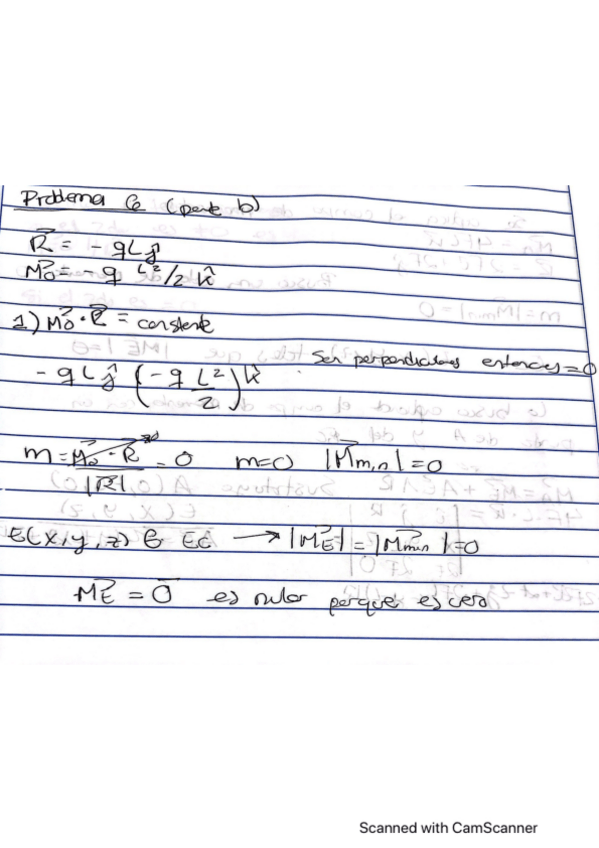 Problema 6 (parte b)
R⃗ = - qLĵ
M⃗o = - q L²/2 k̂
1) M⃗o · R⃗ = constante
Son perpendiculares entonces = 0
- qLĵ (- q L²/2) k̂
m = M⃗o · R⃗ / |R⃗| = 0 m=0 |M⃗min| = 0
E(x, y, z) ∈ EC → |M⃗E| = |M⃗min| = 0
M⃗E = 0⃗ es nulo porque es cero
Scanned with CamScanner